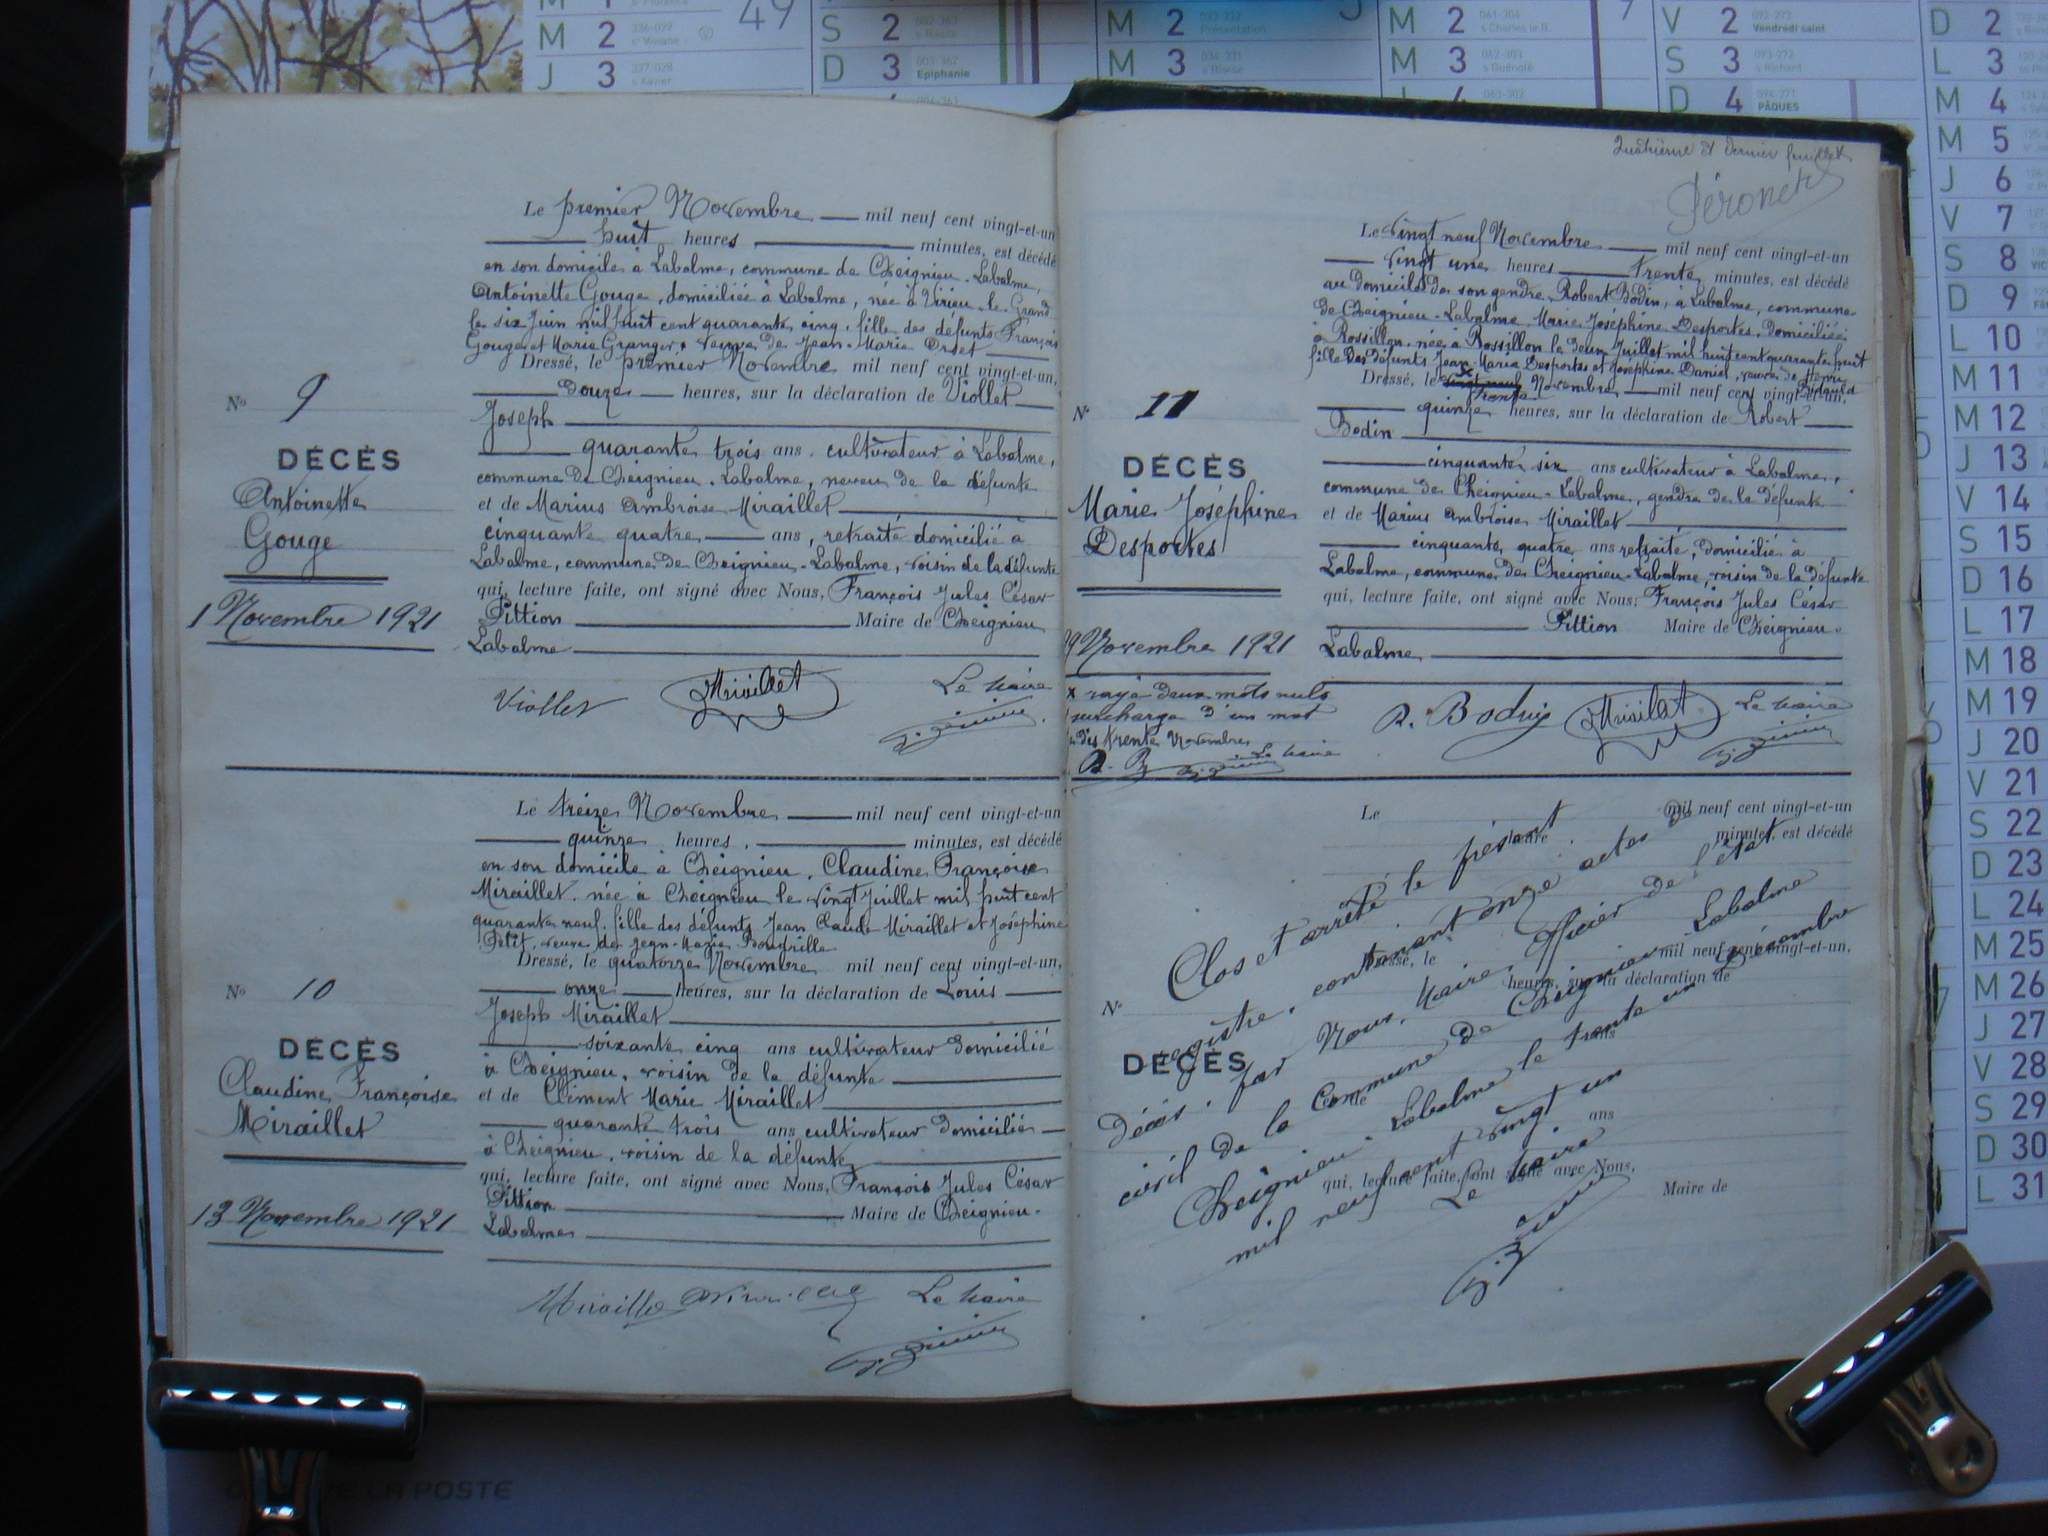 Le premier Novembre mil neuf cent vingt-et-un
huit heures minutes, est décédé
en son domicile à Labalme, commune de Cheignieu-Labalme,
Antoinette Gouge, domiciliée à Labalme, née à Virieu-le-Grand
le six Juin mil huit cent quarante cinq, fille des défunts François
Gouge et Marie Granger, veuve de Jean-Marie Orset
Dressé, le premier Novembre mil neuf cent vingt-et-un,
douze heures, sur la déclaration de Viollet
Joseph
quarante trois ans, cultivateur à Labalme,
commune de Cheignieu-Labalme, neveu de la défunte
et de Marius Ambroise Miraillet
cinquante quatre ans, retraité domicilié à
Labalme, commune de Cheignieu-Labalme, voisin de la défunte
qui, lecture faite, ont signé avec Nous, François Jules César
Pittion Maire de Cheignieu
Labalme
No 9
DÉCÈS
Antoinette
Gouge
1 Novembre 1921
Viollet Miraillet Le Maire
Le treize Novembre mil neuf cent vingt-et-un
quinze heures, minutes, est décédé
en son domicile à Cheignieu, Claudine Françoise
Miraillet, née à Cheignieu le vingt Juillet mil huit cent
quarante neuf, fille des défunts Jean Claude Miraillet et Joséphine
Petit, veuve de Jean-Marie
Dressé, le quatorze Novembre mil neuf cent vingt-et-un,
onze heures, sur la déclaration de Louis
Joseph Miraillet
soixante cinq ans cultivateur domicilié
à Cheignieu, voisin de la défunte
et de Clément Marie Miraillet
quarante trois ans cultivateur domicilié
à Cheignieu, voisin de la défunte
qui, lecture faite, ont signé avec Nous, François Jules César
Pittion Maire de Cheignieu-
Labalme
No 10
DÉCÈS
Claudine Françoise
Miraillet
13 Novembre 1921
Miraillet Miraillet Le Maire
Quatrième et dernier feuillet
Le vingt neuf Novembre mil neuf cent vingt-et-un
vingt une heures trente minutes, est décédé
au domicile de son gendre, Robert Bodin, à Labalme, commune
de Cheignieu-Labalme, Marie Joséphine Desportes, domiciliée
à Rossillon, née à Rossillon le deux Juillet mil huit cent quarante huit
fille des défunts Jean-Marie Desportes et Joséphine Daniel, veuve de Henri
Dressé, le x vingt neuf trente Novembre mil neuf cent vingt-et-un,
quinze heures, sur la déclaration de Robert
Bodin
cinquante six ans cultivateur à Labalme,
commune de Cheignieu-Labalme, gendre de la défunte
et de Marius Ambroise Miraillet
cinquante quatre ans retraité, domicilié à
Labalme, commune de Cheignieu-Labalme, voisin de la défunte
qui, lecture faite, ont signé avec Nous, François Jules César
Pittion Maire de Cheignieu-
Labalme
No 11
DÉCÈS
Marie Joséphine
Desportes
29 Novembre 1921
x rayé deux mots nuls
surcharge d'un mot
dis trente Novembre
R. B Le Maire
R. Bodin Miraillet Le Maire
Le mil neuf cent vingt-et-un
heure minutes, est décédé
Dressé, le mil neuf cent vingt-et-un,
heures, sur la déclaration de
No
DÉCÈS
ans
et de
ans
qui, lecture faite, ont signé avec Nous,
Maire de
Clos et arrêté le présent
registre, contenant onze actes de
décès, par Nous, Maire, Officier de l'état
civil de la Commune de Cheignieu-Labalme
Cheignieu-Labalme le trente un Décembre
mil neuf cent vingt un
Le Maire
49
M 2
J 3
S 2
D 3 Epiphanie
M 2 Présentation
M 3
M 2
M 3
V 2 Vendredi saint
S 3
D 4 PÂQUES
D 2
L 3
M 4
M 5
J 6
V 7
S 8
D 9
L 10
M 11
M 12
J 13
V 14
S 15
D 16
L 17
M 18
M 19
J 20
V 21
S 22
D 23
L 24
M 25
M 26
J 27
V 28
S 29
D 30
L 31
LA POSTE